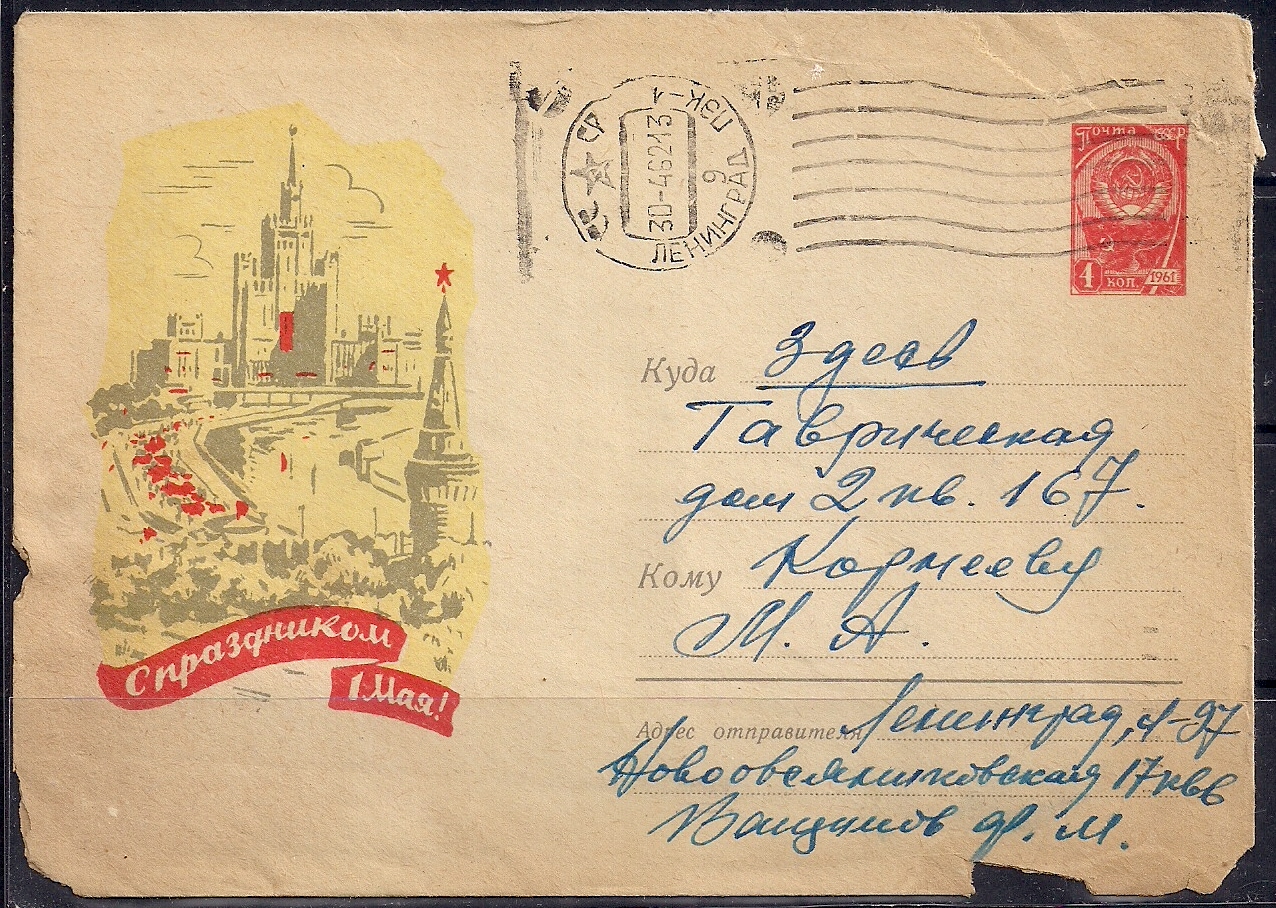 СССР
ПЭК-1
30-4 62 13
9
ЛЕНИНГРАД
Почта СССР
4 коп. 1961
Куда Здесь
Таврическая
дом 2 кв. 167.
Кому Корнееву
М. А.
Адрес отправителя Ленинград, Л-97
Новоовсянниковская 17 кв 6
С праздником
1 Мая!